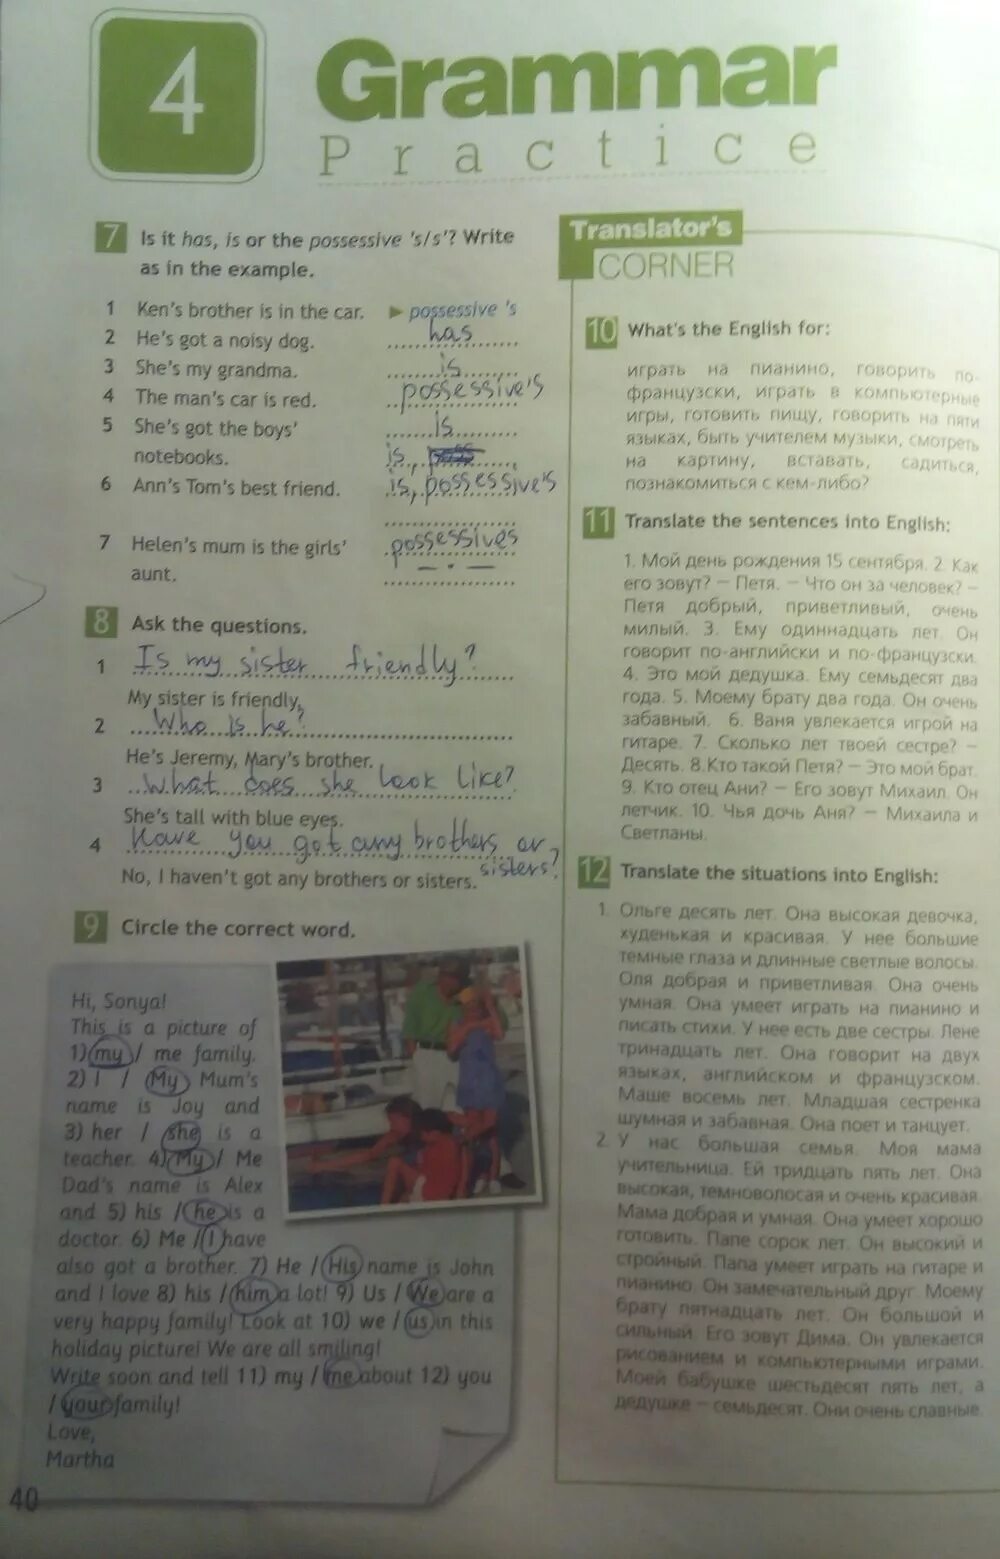 4
Grammar
Practice
7 Is it has, is or the possessive 's/s'? Write
as in the example.
1 Ken's brother is in the car. ► possessive 's
2 He's got a noisy dog. has
3 She's my grandma. is
4 The man's car is red. possessive's
5 She's got the boys' is
notebooks. is,
6 Ann's Tom's best friend. is, possessive's
7 Helen's mum is the girls' possessives
aunt. — • —
8 Ask the questions.
1 Is my sister friendly?
My sister is friendly.
2 Who is he?
He's Jeremy, Mary's brother.
3 What does she look like?
She's tall with blue eyes.
4 Have you got any brothers or
sisters?
No, I haven't got any brothers or sisters.
9 Circle the correct word.
Hi, Sonya!
This is a picture of
1) my / me family.
2) I / My Mum's
name is Joy and
3) her / she is a
teacher. 4) My / Me
Dad's name is Alex
and 5) his / he is a
doctor. 6) Me / I have
also got a brother. 7) He / His name is John
and I love 8) his / him a lot! 9) Us / We are a
very happy family! Look at 10) we / us in this
holiday picture! We are all smiling!
Write soon and tell 11) my / me about 12) you
/ your family!
Love,
Martha
40
Translator's
CORNER
10 What's the English for:
играть на пианино, говорить по-
французски, играть в компьютерные
игры, готовить пищу, говорить на пяти
языках, быть учителем музыки, смотреть
на картину, вставать, садиться,
познакомиться с кем-либо?
11 Translate the sentences into English:
1. Мой день рождения 15 сентября. 2. Как
его зовут? — Петя. — Что он за человек? —
Петя добрый, приветливый, очень
милый. 3. Ему одиннадцать лет. Он
говорит по-английски и по-французски.
4. Это мой дедушка. Ему семьдесят два
года. 5. Моему брату два года. Он очень
забавный. 6. Ваня увлекается игрой на
гитаре. 7. Сколько лет твоей сестре? —
Десять. 8. Кто такой Петя? — Это мой брат.
9. Кто отец Ани? — Его зовут Михаил. Он
летчик. 10. Чья дочь Аня? — Михаила и
Светланы.
12 Translate the situations into English:
1. Ольге десять лет. Она высокая девочка,
худенькая и красивая. У нее большие
темные глаза и длинные светлые волосы.
Оля добрая и приветливая. Она очень
умная. Она умеет играть на пианино и
писать стихи. У нее есть две сестры. Лене
тринадцать лет. Она говорит на двух
языках, английском и французском.
Маше восемь лет. Младшая сестренка
шумная и забавная. Она поет и танцует.
2. У нас большая семья. Моя мама
учительница. Ей тридцать пять лет. Она
высокая, темноволосая и очень красивая.
Мама добрая и умная. Она умеет хорошо
готовить. Папе сорок лет. Он высокий и
стройный. Папа умеет играть на гитаре и
пианино. Он замечательный друг. Моему
брату пятнадцать лет. Он большой и
сильный. Его зовут Дима. Он увлекается
рисованием и компьютерными играми.
Моей бабушке шестьдесят пять лет, а
дедушке — семьдесят. Они очень славные.